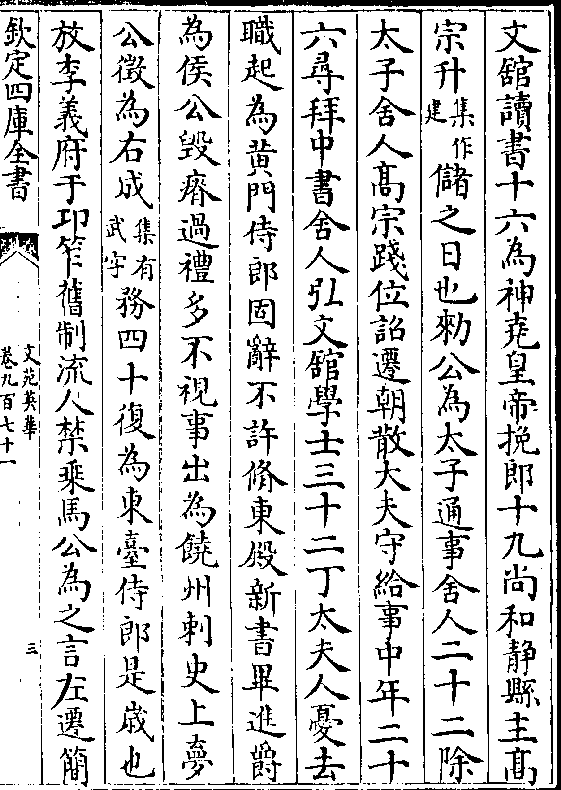 文館讀書十六為神堯皇帝挽郎十九尚和静縣主髙
宗升集作建儲之日也勅公為太子通事舍人二十二除
太子舍人髙宗踐位詔遷朝散大夫守給事中年二十
六尋拜中書舍人弘文館學士三十二丁太夫人憂去
職起為黄門侍郎固辭不許脩東殿新書畢進爵
為侯公毁瘠過禮多不視事出為饒州刺史上夢
公徵為右成集有武字務四十復為東臺侍郎是歳也
放李義府于卭笮舊制流人禁乘馬公為之言左遷簡
欽定四庫全書
文苑英華
卷九百七十一
三